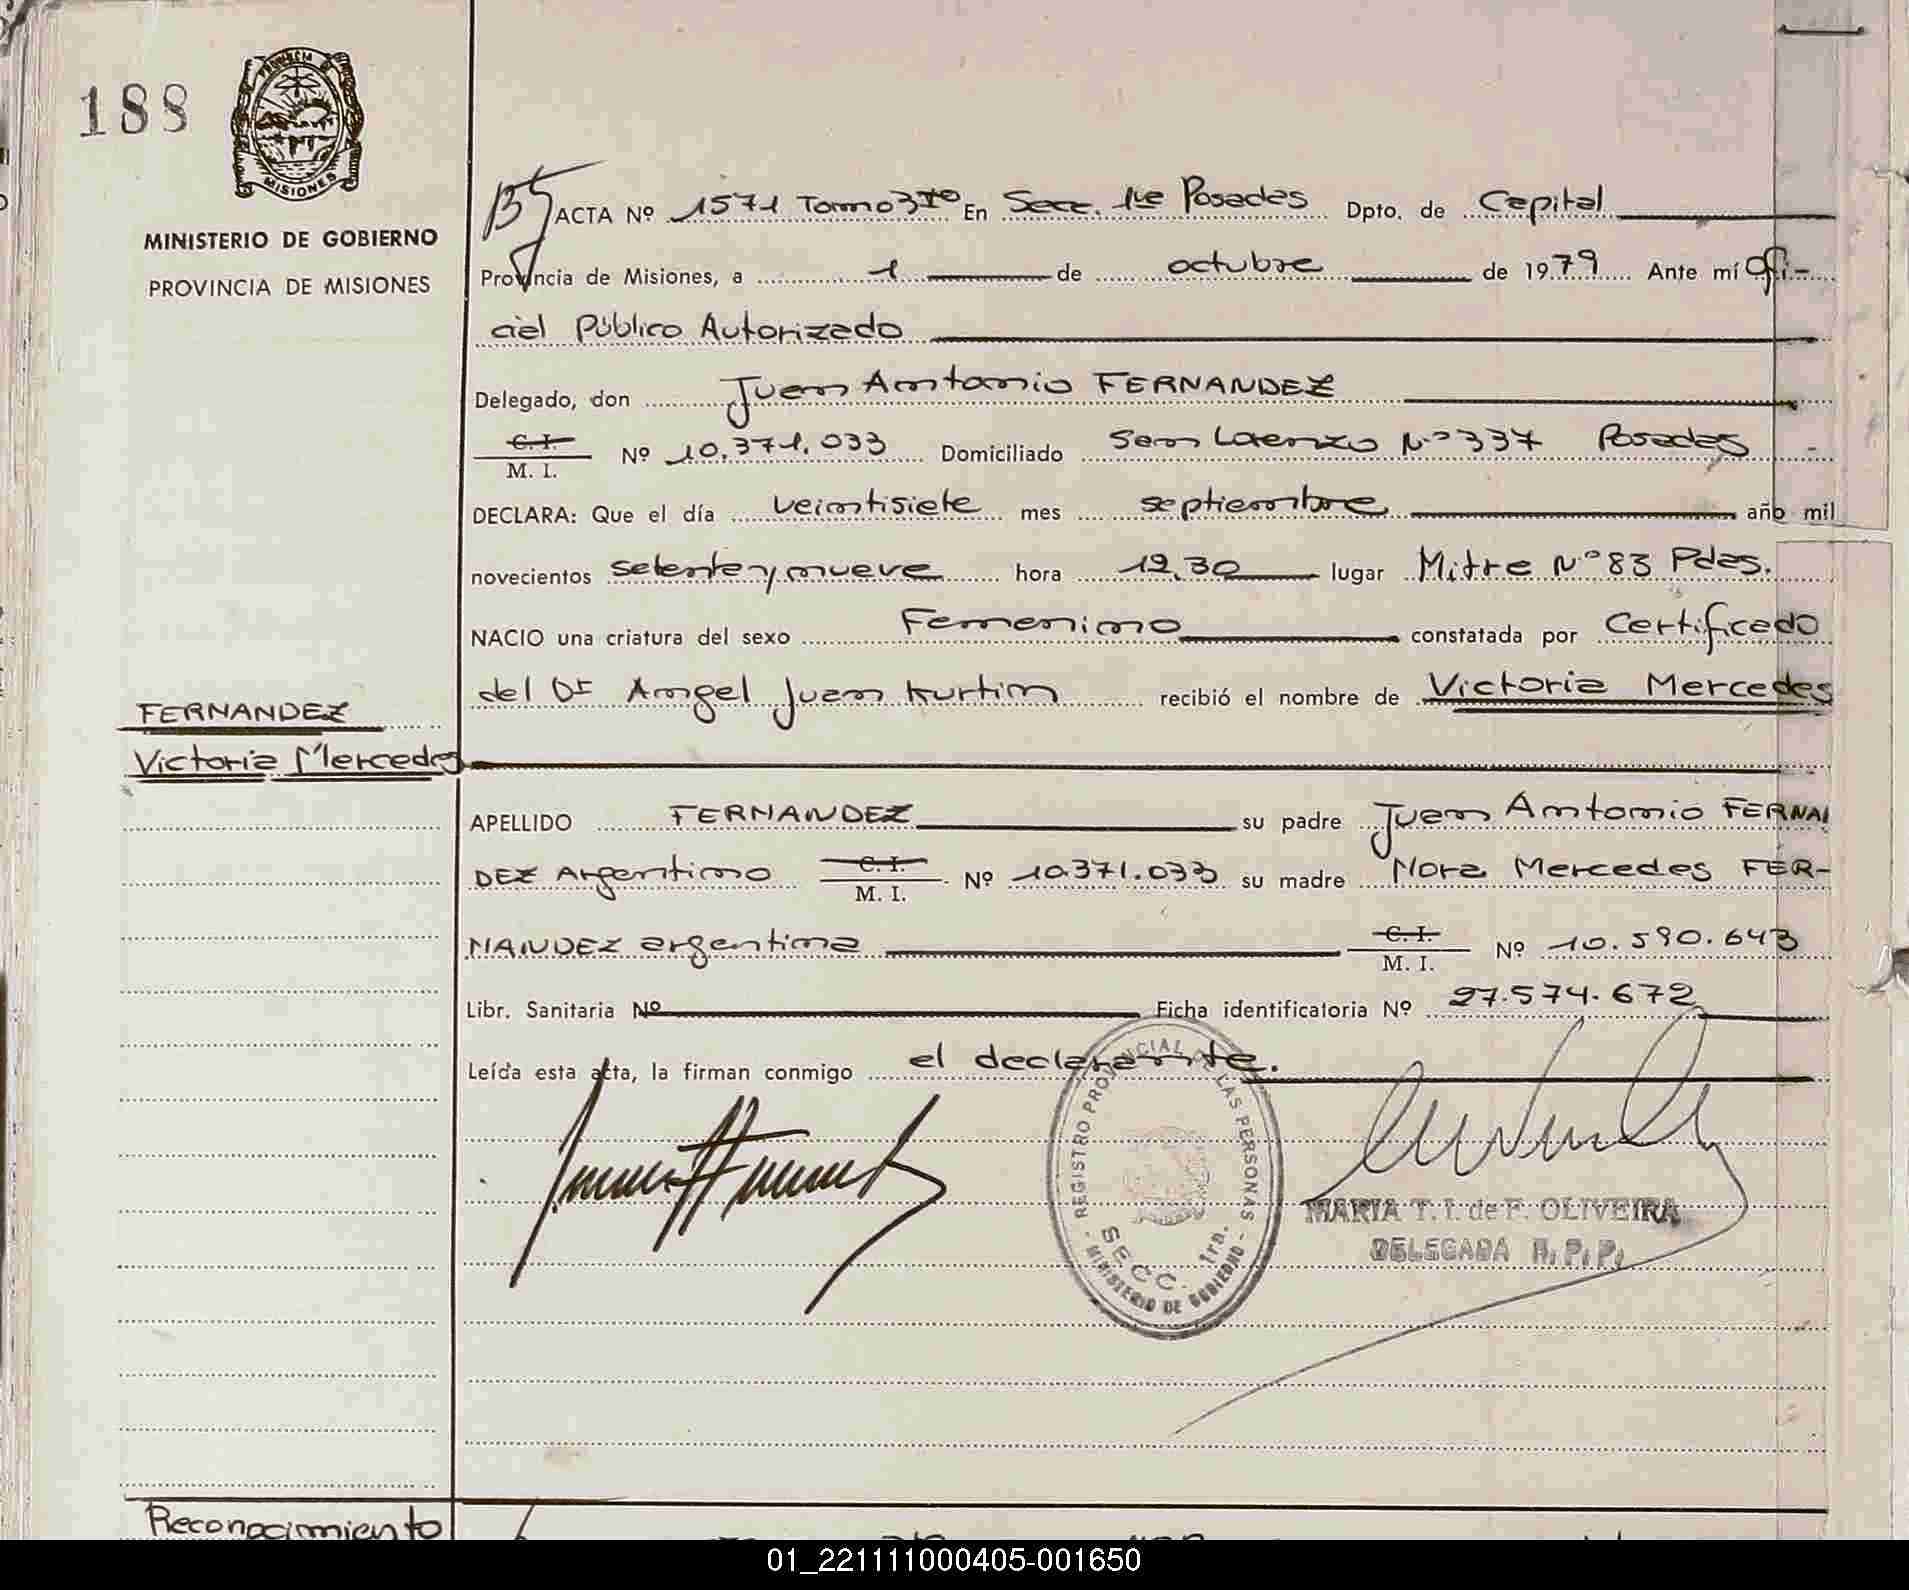 188
PROVINCIA DE
MISIONES
MINISTERIO DE GOBIERNO
PROVINCIA DE MISIONES
ACTA Nº 1571 Tomo 3ro En Secc. 1ra Posadas Dpto. de Capital
Provincia de Misiones, a 1 de octubre de 1979 Ante mí Ofi-
cial Público Autorizado
Delegado, don Juan Antonio FERNANDEZ
C. I.
M. I. Nº 10.371.033 Domiciliado San Lorenzo Nº 337 Posadas
DECLARA: Que el día veintisiete mes septiembre año mil
novecientos setenta y nueve hora 12,30 lugar Mitre Nº 83 Pdas.
NACIO una criatura del sexo Femenino constatada por Certificado
del Dr Angel Juan Kurtin recibió el nombre de Victoria Mercedes
FERNANDEZ
Victoria Mercedes
APELLIDO FERNANDEZ su padre Juan Antonio FERNAN
DEZ Argentino C. I. M. I. Nº 10.371.033 su madre Nora Mercedes FER-
NANDEZ argentina C. I. M. I. Nº 10.590.643
Libr. Sanitaria Nº Ficha identificatoria Nº 27.574.672
Leída esta acta, la firman conmigo el declarante.
REGISTRO PROVINCIAL DE LAS PERSONAS
SECC. 1ra.
- MINISTERIO DE GOBIERNO -
MARIA T. I. de F. OLIVEIRA
DELEGADA R. P. P.
Reconocimiento
01_221111000405-001650